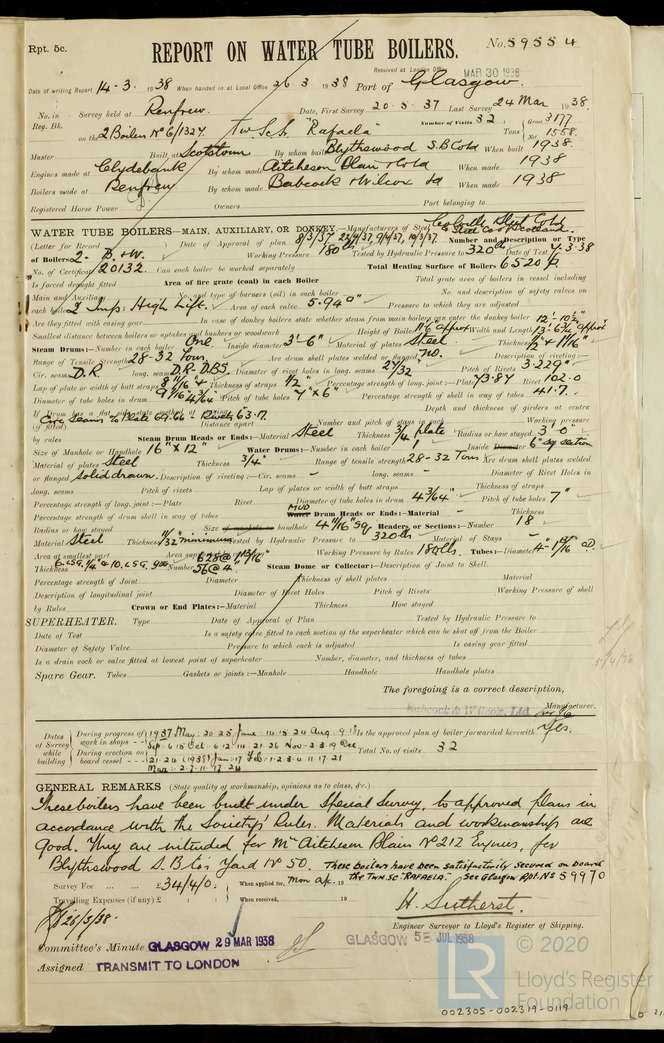 Rpt. 5c.
No. 59554
REPORT ON WATER TUBE BOILERS.
Received at London Office MAR 30 1938
Date of writing Report 14 - 3. 1938 When handed in at Local Office 26 3. 1938 Port of Glasgow.
No. in Reg. Bk. Survey held at Renfrew. Date, First Survey 20 · 5 · 37 Last Survey 24 Mar 1938.
on the 2 Boilers Nº 6/1327. Tw. S.S. "Rafaela" Number of Visits 32 Tons Gross 3177 Net 1558.
Master Built at Scotstoun By whom built Blythswood S.B. Co Ltd When built 1938.
Engines made at Clydebank By whom made Aitcheson Blair & Co Ld When made 1938
Boilers made at Renfrew By whom made Babcock & Wilcox Ld When made 1938
Registered Horse Power Owners Port belonging to
WATER TUBE BOILERS—MAIN, AUXILIARY, OR DONKEY.—Manufacturers of Steel Colvilles Ltd
(Letter for Record ) Date of Approval of plan 8/3/37 Number and Description or Type
of Boilers 2 - B. & W. Working Pressure 180 lbs Tested by Hydraulic Pressure to 320 lbs Date of Test 4.3.38
No. of Certificate 20132. Can each boiler be worked separately Total Heating Surface of Boilers 6520
Is forced draught fitted Area of fire grate (coal) in each Boiler Total grate area of boilers in vessel including
Main and Auxiliary No. and type of burners (oil) in each boiler No. and description of safety valves on
each boiler 2 Imp: High Lift. Area of each valve 5.940" Pressure to which they are adjusted
Are they fitted with easing gear In case of donkey boilers state whether steam from main boilers can enter the donkey boiler 12'-10½"
Smallest distance between boilers or uptakes and bunkers or woodwork Height of Boiler 11'6 approx Width and Length 13'-6 7/16 approx
Steam Drums:—Number in each boiler One Inside diameter 3'-6" Material of plates Steel Thickness ½" & 11/16"
Range of Tensile Strength 28-32 Tons. Are drum shell plates welded or flanged No. Description of riveting:—
Cir. seams D.R. long. seams D.R. D.B.S. Diameter of rivet holes in long. seams 27/32 Pitch of Rivets 3.229"
Lap of plate or width of butt straps Thickness of straps ½" Percentage strength of long. joint:—Plate 73.87 Rivet 102.0
Diameter of tube holes in drum Pitch of tube holes 7" x 6" Percentage strength of shell in way of tubes 41.7.
If Drum has a flat side state method of staying Depth and thickness of girders at centre
Circ Seams To Plate 64.66 - Rivets 63.7.
(if fitted) Distance apart Number and pitch of stays in each Working pressure
by rules Steam Drum Heads or Ends:—Material Steel Thickness ¾ plate Radius or how stayed 3'. 0"
Size of Manhole or Handhole 16" x 12" Water Drums:—Number in each boiler 1 Inside Diameter 6" sq section
Material of plates Steel Thickness ¾" Range of tensile strength 28-32 Tons Are drum shell plates welded
or flanged Solid drawn. Description of riveting:—Cir. seams long. seams Diameter of Rivet Holes in
long. seams Pitch of rivets Lap of plates or width of butt straps Thickness of straps
Percentage strength of long. joint:—Plate Rivet Diameter of tube holes in drum 4 3/64" Pitch of tube holes 7"
Percentage strength of drum shell in way of tubes MUD Water Drum Heads or Ends:—Material Thickness
Radius or how stayed Size of manhole or handhole 4 11/16" sq. Headers or Sections:—Number 18
Material Steel Thickness 11/32" minimum Tested by Hydraulic Pressure to 320 lbs Material of Stays
Area at smallest part Area supported Working Pressure by Rules 180 lbs. Tubes:—Diameter 4" 1 13/16 OD.
Thickness 6 LSG. ¼" & 10. LSG. Number 56 @ 4" Steam Dome or Collector:—Description of Joint to Shell
Percentage strength of Joint Diameter Thickness of shell plates Material
Description of longitudinal joint Diameter of Rivet Holes Pitch of Rivets Working Pressure of shell
by Rules Crown or End Plates:—Material Thickness How stayed
SUPERHEATER. Type Date of Approval of Plan Tested by Hydraulic Pressure to
Date of Test Is a safety valve fitted to each section of the superheater which can be shut off from the Boiler
Diameter of Safety Valve Pressure to which each is adjusted Is easing gear fitted
Is a drain cock or valve fitted at lowest point of superheater Number, diameter, and thickness of tubes
Spare Gear. Tubes Gaskets or joints:—Manhole Handhole Handhole plates
The foregoing is a correct description,
Babcock & Wilcox, Ltd. Manufacturer.
Dates of Survey while building During progress of work in shops - - 1937 May: 20. 25 June: 10. 15. 24 Aug: 9. Is the approved plan of boiler forwarded herewith Yes.
Sep: 6. 15 Oct: 6. 12. 14. 21. 26 Nov: 2. 3. 19 Dec
During erection on board vessel - - - 21. 24 (1938) Jan: 17 Feb: 1. 2. 3. 4. 11. 17. 21 Total No. of visits 32
Mar: 2. 7. 11. 17. 24
GENERAL REMARKS (State quality of workmanship, opinions as to class, &c.)
These boilers have been built under Special Survey, to approved plans in
accordance with the Society's Rules. Materials and workmanship are
good. They are intended for Mr Aitcheson Blairs Nº 212 Engines, for
Blythswood S. B. Co's Yard Nº 50. These boilers have been satisfactorily secured on board
the Twn Sc "RAFAELA". See Glasgow Rpt. No 59970
Survey Fee ... ... £34/4/0: When applied for, 19
Travelling Expenses (if any) £ : : When received, 19
H. Sutherst.
Engineer Surveyor to Lloyd's Register of Shipping.
26/3/38.
Committee's Minute GLASGOW 29 MAR 1938 GLASGOW 5 JUL 1938
Assigned TRANSMIT TO LONDON
© 2020
LR Lloyd's Register Foundation
002305-002319-0119